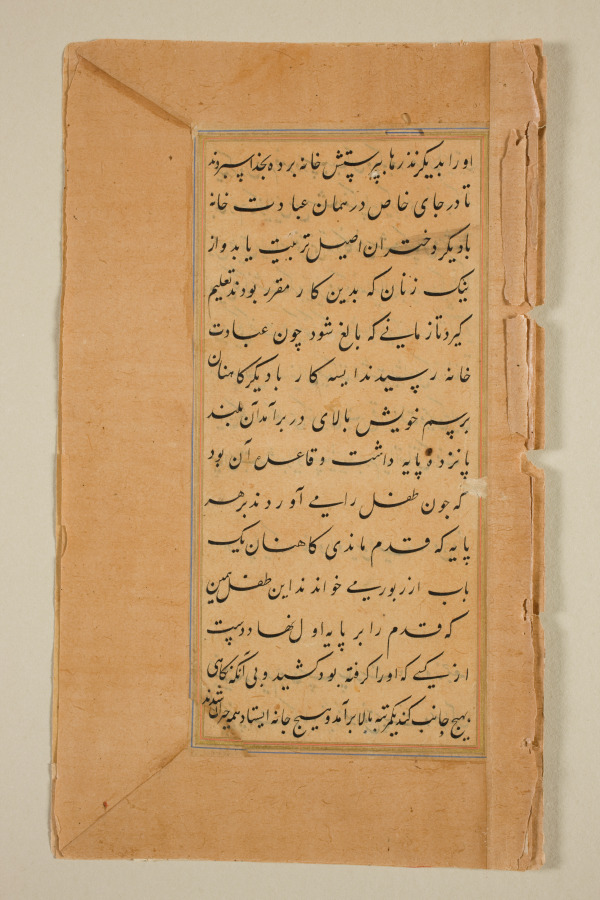 او را بدیگر نذرها بپرستش خانه برده بخدا سپردند
تا در جای خاص در همان عبادت خانه
با دیگر دختران اصیل تربیت یابد و از
نیک زنان که بدین کار مقرر بودند تعلیم
گیرد تا زمانے که بالغ شود چون عبادت
خانه رسیدند ایسه کار با دیگر کاهنان
برسم خویش بالای در برآمد آن بلند
پانزده پایه داشت و قاعده آن بود
که چون طفل را مے آوردند بر هر
پایه که قدم ماندی کاهنان یک
باب از زبور مے خواندند این طفل همین
که قدم را بر پایه اول نهاد دست
از کسے که او را گرفته بود کشید و بی آنکه نگاهی
بهیچ جانب کند یکمرتبه بالا برآمد و هیچ جا نه ایستاد همه حیران شدند